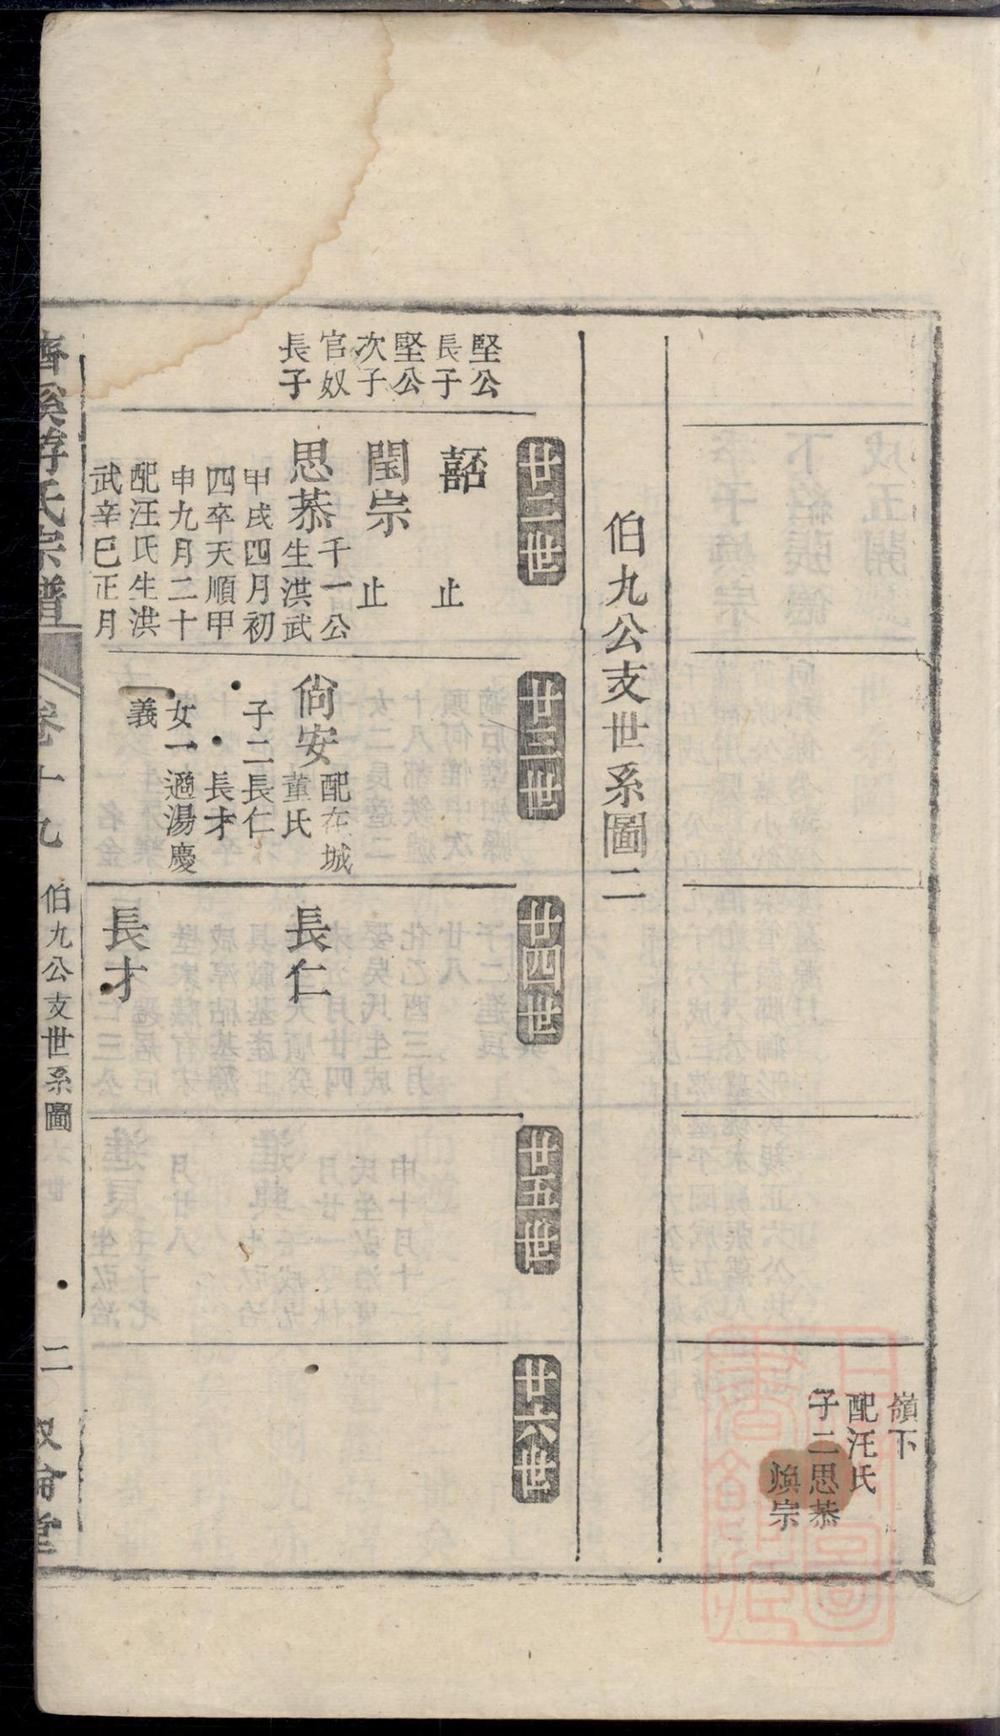 嶺下
配汪氏
子二思恭
煥宗
伯九公支世系圖二
廿二世
廿三世
廿四世
廿五世
廿六世
堅公
長子
嚞
止
堅公
次子
閏宗
止
官奴
長子
思恭
千一公
生洪武
甲戌四月初
四卒天順甲
申九月二十
配汪氏生洪
武辛巳正月
尙安
配在城
董氏
子二長仁
長才
女一適湯慶
義
長仁
長才
濟溪游氏宗譜
卷十九
伯九公支世系圖
二
叙倫堂